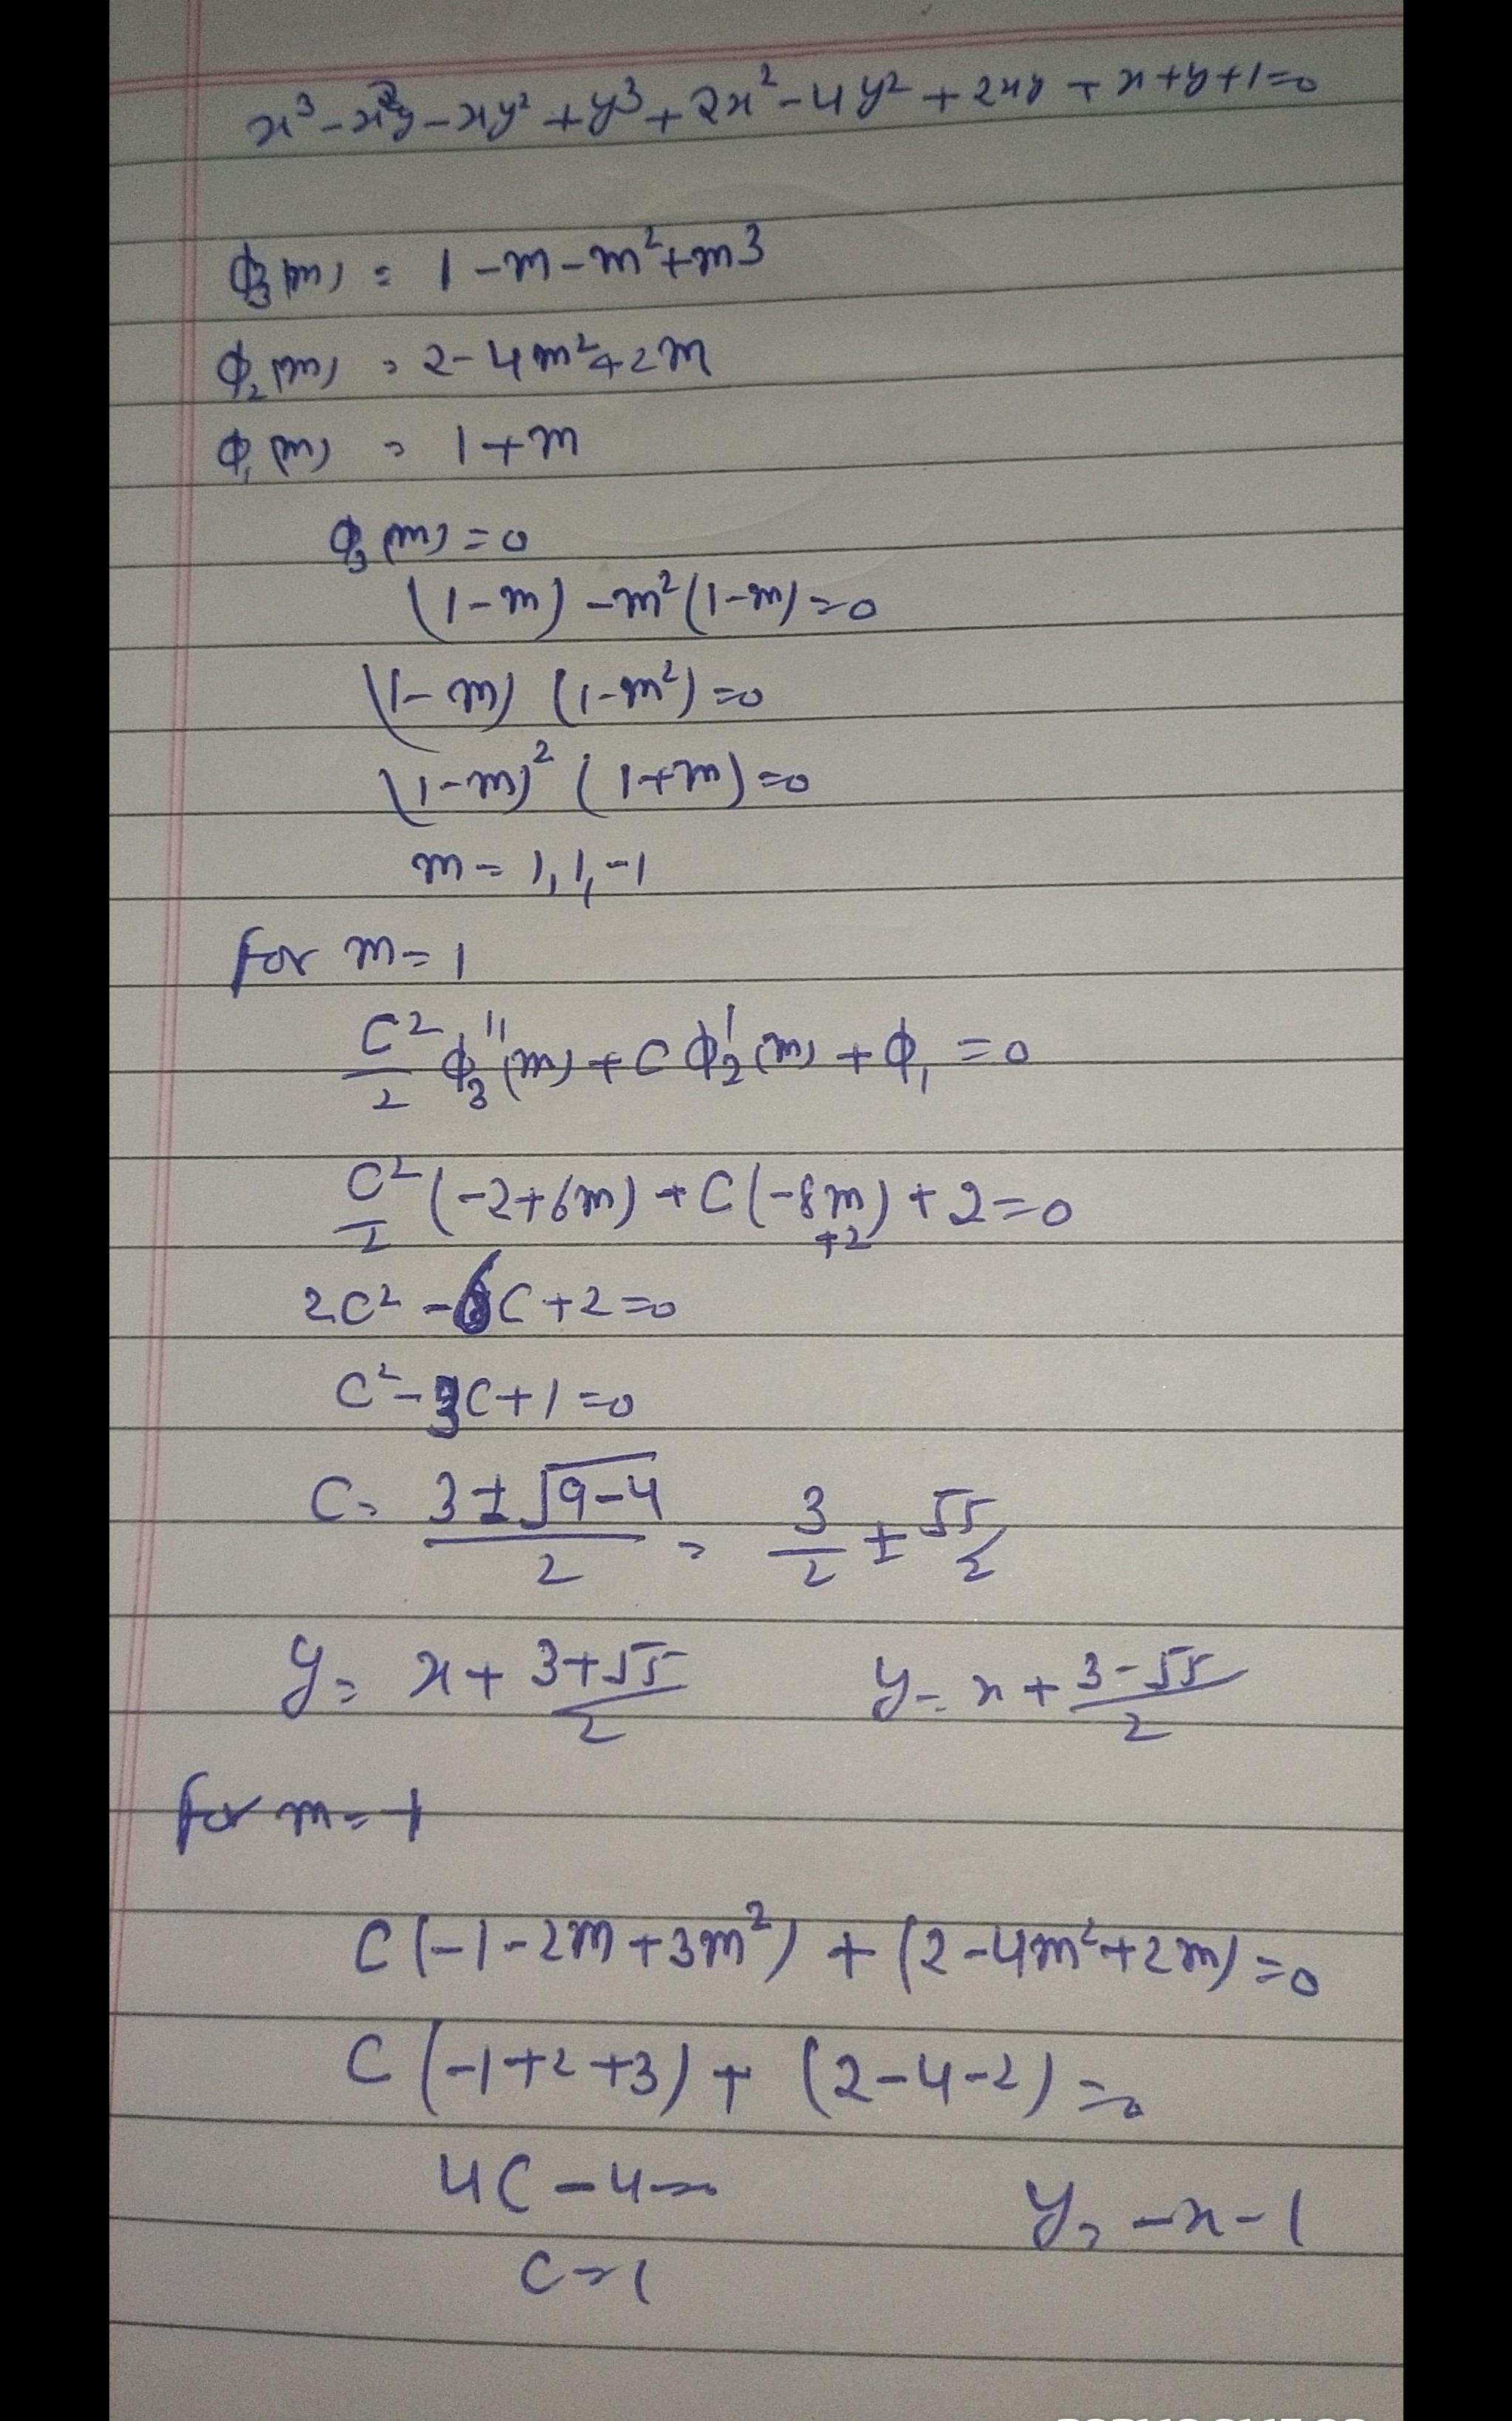 x³ - x²y - xy² + y³ + 2x² - 4y² + 2xy + x + y + 1 = 0
ϕ₃(m) = 1 - m - m² + m³
ϕ₂(m) = 2 - 4m² + 2m
ϕ₁(m) = 1 + m
ϕ₃(m) = 0
(1 - m) - m²(1 - m) = 0
(1 - m) (1 - m²) = 0
(1 - m)² (1 + m) = 0
m = 1, 1, -1
for m = 1
C²/2 ϕ₃''(m) + C ϕ₂'(m) + ϕ₁ = 0
C²/2 (-2 + 6m) + C(-8m + 2) + 2 = 0
2C² - 6C + 2 = 0
C² - 3C + 1 = 0
C = (3 ± √(9 - 4))/2 = 3/2 ± √5/2
y = x + (3 + √5)/2 y = x + (3 - √5)/2
for m = -1
C(-1 - 2m + 3m²) + (2 - 4m² + 2m) = 0
C(-1 + 2 + 3) + (2 - 4 - 2) = 0
4C - 4 = 0 y = -x - 1
C = 1